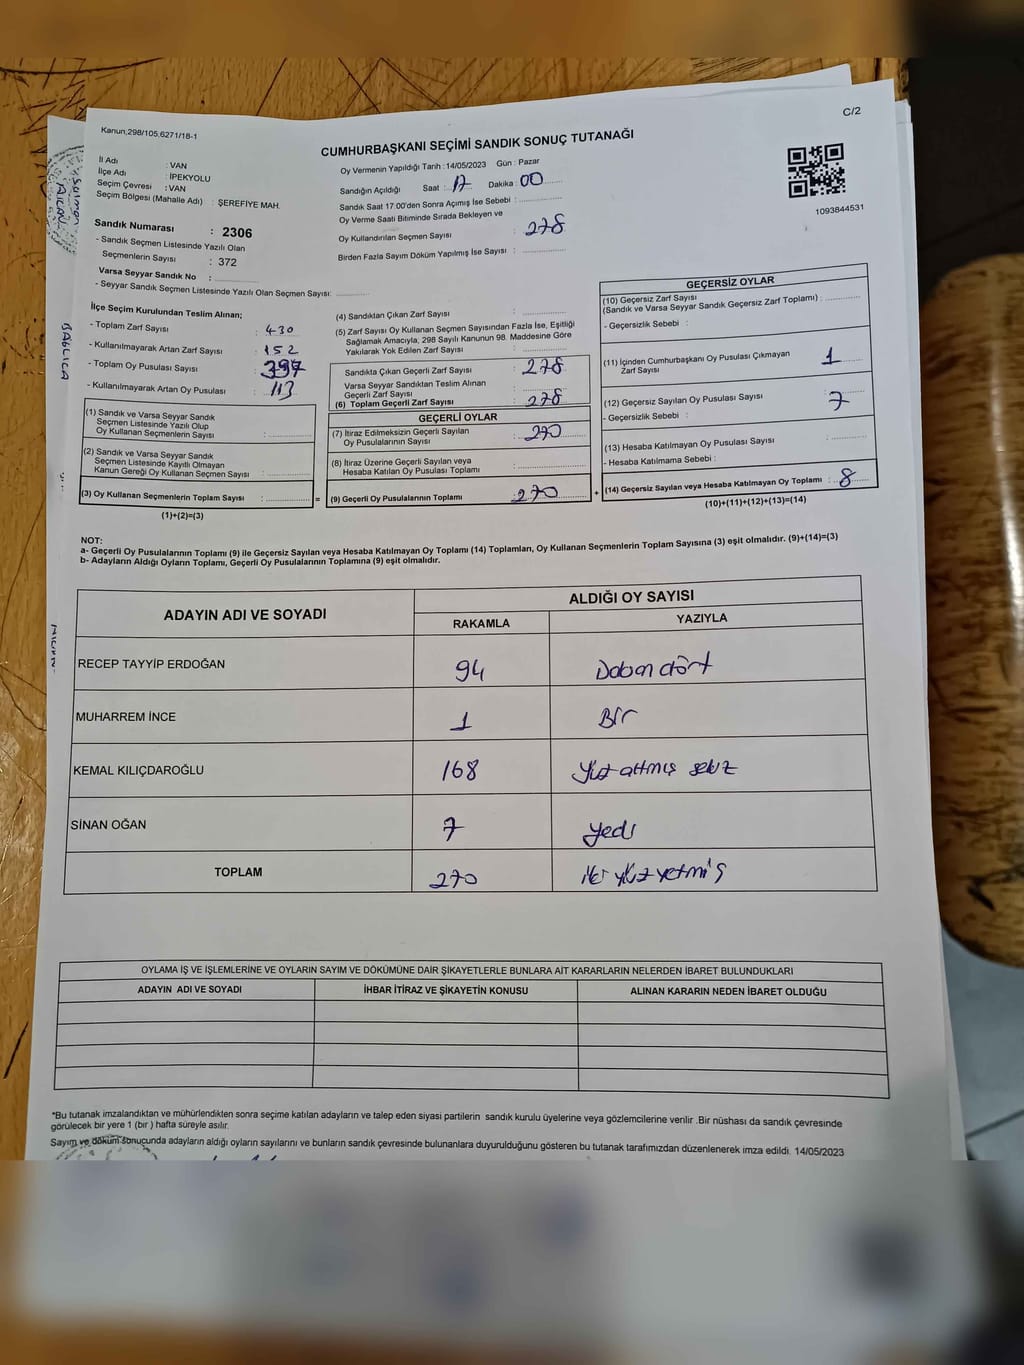 C/2
Kanun,298/105,6271/18-1
CUMHURBAŞKANI SEÇİMİ SANDIK SONUÇ TUTANAĞI
İl Adı : VAN
İlçe Adı : İPEKYOLU
Seçim Çevresi : VAN
Seçim Bölgesi (Mahalle Adı) : ŞEREFİYE MAH.
Oy Vermenin Yapıldığı Tarih : 14/05/2023 Gün : Pazar
Sandığın Açıldığı Saat : 17 Dakika : 00
Sandık Saat 17.00'den Sonra Açımış İse Sebebi :
Oy Verme Saati Bitiminde Sırada Bekleyen ve
Oy Kullandırılan Seçmen Sayısı : 278
Birden Fazla Sayım Döküm Yapılmış İse Sayısı :
1093844531
Sandık Numarası : 2306
- Sandık Seçmen Listesinde Yazılı Olan
Seçmenlerin Sayısı : 372
Varsa Seyyar Sandık No :
- Seyyar Sandık Seçmen Listesinde Yazılı Olan Seçmen Sayısı:
İlçe Seçim Kurulundan Teslim Alınan;
- Toplam Zarf Sayısı : 430
- Kullanılmayarak Artan Zarf Sayısı : 152
- Toplam Oy Pusulası Sayısı :
- Kullanılmayarak Artan Oy Pusulası : 113
(1) Sandık ve Varsa Seyyar Sandık
Seçmen Listesinde Yazılı Olup
Oy Kullanan Seçmenlerin Sayısı :
(2) Sandık ve Varsa Seyyar Sandık
Seçmen Listesinde Kayıtlı Olmayan
Kanun Gereği Oy Kullanan Seçmen Sayısı :
(3) Oy Kullanan Seçmenlerin Toplam Sayısı : =
(1)+(2)=(3)
(4) Sandıktan Çıkan Zarf Sayısı :
(5) Zarf Sayısı Oy Kullanan Seçmen Sayısından Fazla İse, Eşitliği
Sağlamak Amacıyla, 298 Sayılı Kanunun 98. Maddesine Göre
Yakılarak Yok Edilen Zarf Sayısı :
Sandıkta Çıkan Geçerli Zarf Sayısı : 278
Varsa Seyyar Sandıktan Teslim Alınan
Geçerli Zarf Sayısı :
(6) Toplam Geçerli Zarf Sayısı : 278
GEÇERLİ OYLAR
(7) İtiraz Edilmeksizin Geçerli Sayılan
Oy Pusulalarının Sayısı : 270
(8) İtiraz Üzerine Geçerli Sayılan veya
Hesaba Katılan Oy Pusulası Toplamı :
(9) Geçerli Oy Pusulalarının Toplamı : 270 +
GEÇERSİZ OYLAR
(10) Geçersiz Zarf Sayısı
(Sandık ve Varsa Seyyar Sandık Geçersiz Zarf Toplamı) :
- Geçersizlik Sebebi :
(11) İçinden Cumhurbaşkanı Oy Pusulası Çıkmayan
Zarf Sayısı : 1
(12) Geçersiz Sayılan Oy Pusulası Sayısı : 7
- Geçersizlik Sebebi :
(13) Hesaba Katılmayan Oy Pusulası Sayısı :
- Hesaba Katılmama Sebebi :
(14) Geçersiz Sayılan veya Hesaba Katılmayan Oy Toplamı : 8
(10)+(11)+(12)+(13)=(14)
NOT:
a- Geçerli Oy Pusulalarının Toplamı (9) ile Geçersiz Sayılan veya Hesaba Katılmayan Oy Toplamı (14) Toplamları, Oy Kullanan Seçmenlerin Toplam Sayısına (3) eşit olmalıdır. (9)+(14)=(3)
b- Adayların Aldığı Oyların Toplamı, Geçerli Oy Pusulalarının Toplamına (9) eşit olmalıdır.
ADAYIN ADI VE SOYADI
ALDIĞI OY SAYISI
RAKAMLA YAZIYLA
RECEP TAYYİP ERDOĞAN 94 Doksan dört
MUHARREM İNCE 1 Bir
KEMAL KILIÇDAROĞLU 168 Yüz altmış sekiz
SİNAN OĞAN 7 yedi
TOPLAM 270 iki yüz yetmiş
OYLAMA İŞ VE İŞLEMLERİNE VE OYLARIN SAYIM VE DÖKÜMÜNE DAİR ŞİKAYETLERLE BUNLARA AİT KARARLARIN NELERDEN İBARET BULUNDUKLARI
ADAYIN ADI VE SOYADI İHBAR İTİRAZ VE ŞİKAYETİN KONUSU ALINAN KARARIN NEDEN İBARET OLDUĞU
*Bu tutanak imzalandıktan ve mühürlendikten sonra seçime katılan adayların ve talep eden siyasi partilerin sandık kurulu üyelerine veya gözlemcilerine verilir. Bir nüshası da sandık çevresinde
görülecek bir yere 1 (bir ) hafta süreyle asılır.
Sayım ve döküm sonucunda adayların aldığı oyların sayılarını ve bunların sandık çevresinde bulunanlara duyurulduğunu gösteren bu tutanak tarafımızdan düzenlenerek imza edildi. 14/05/2023